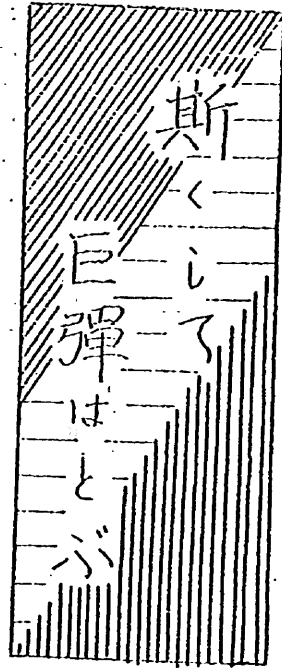 斯くして
巨彈はとぶ